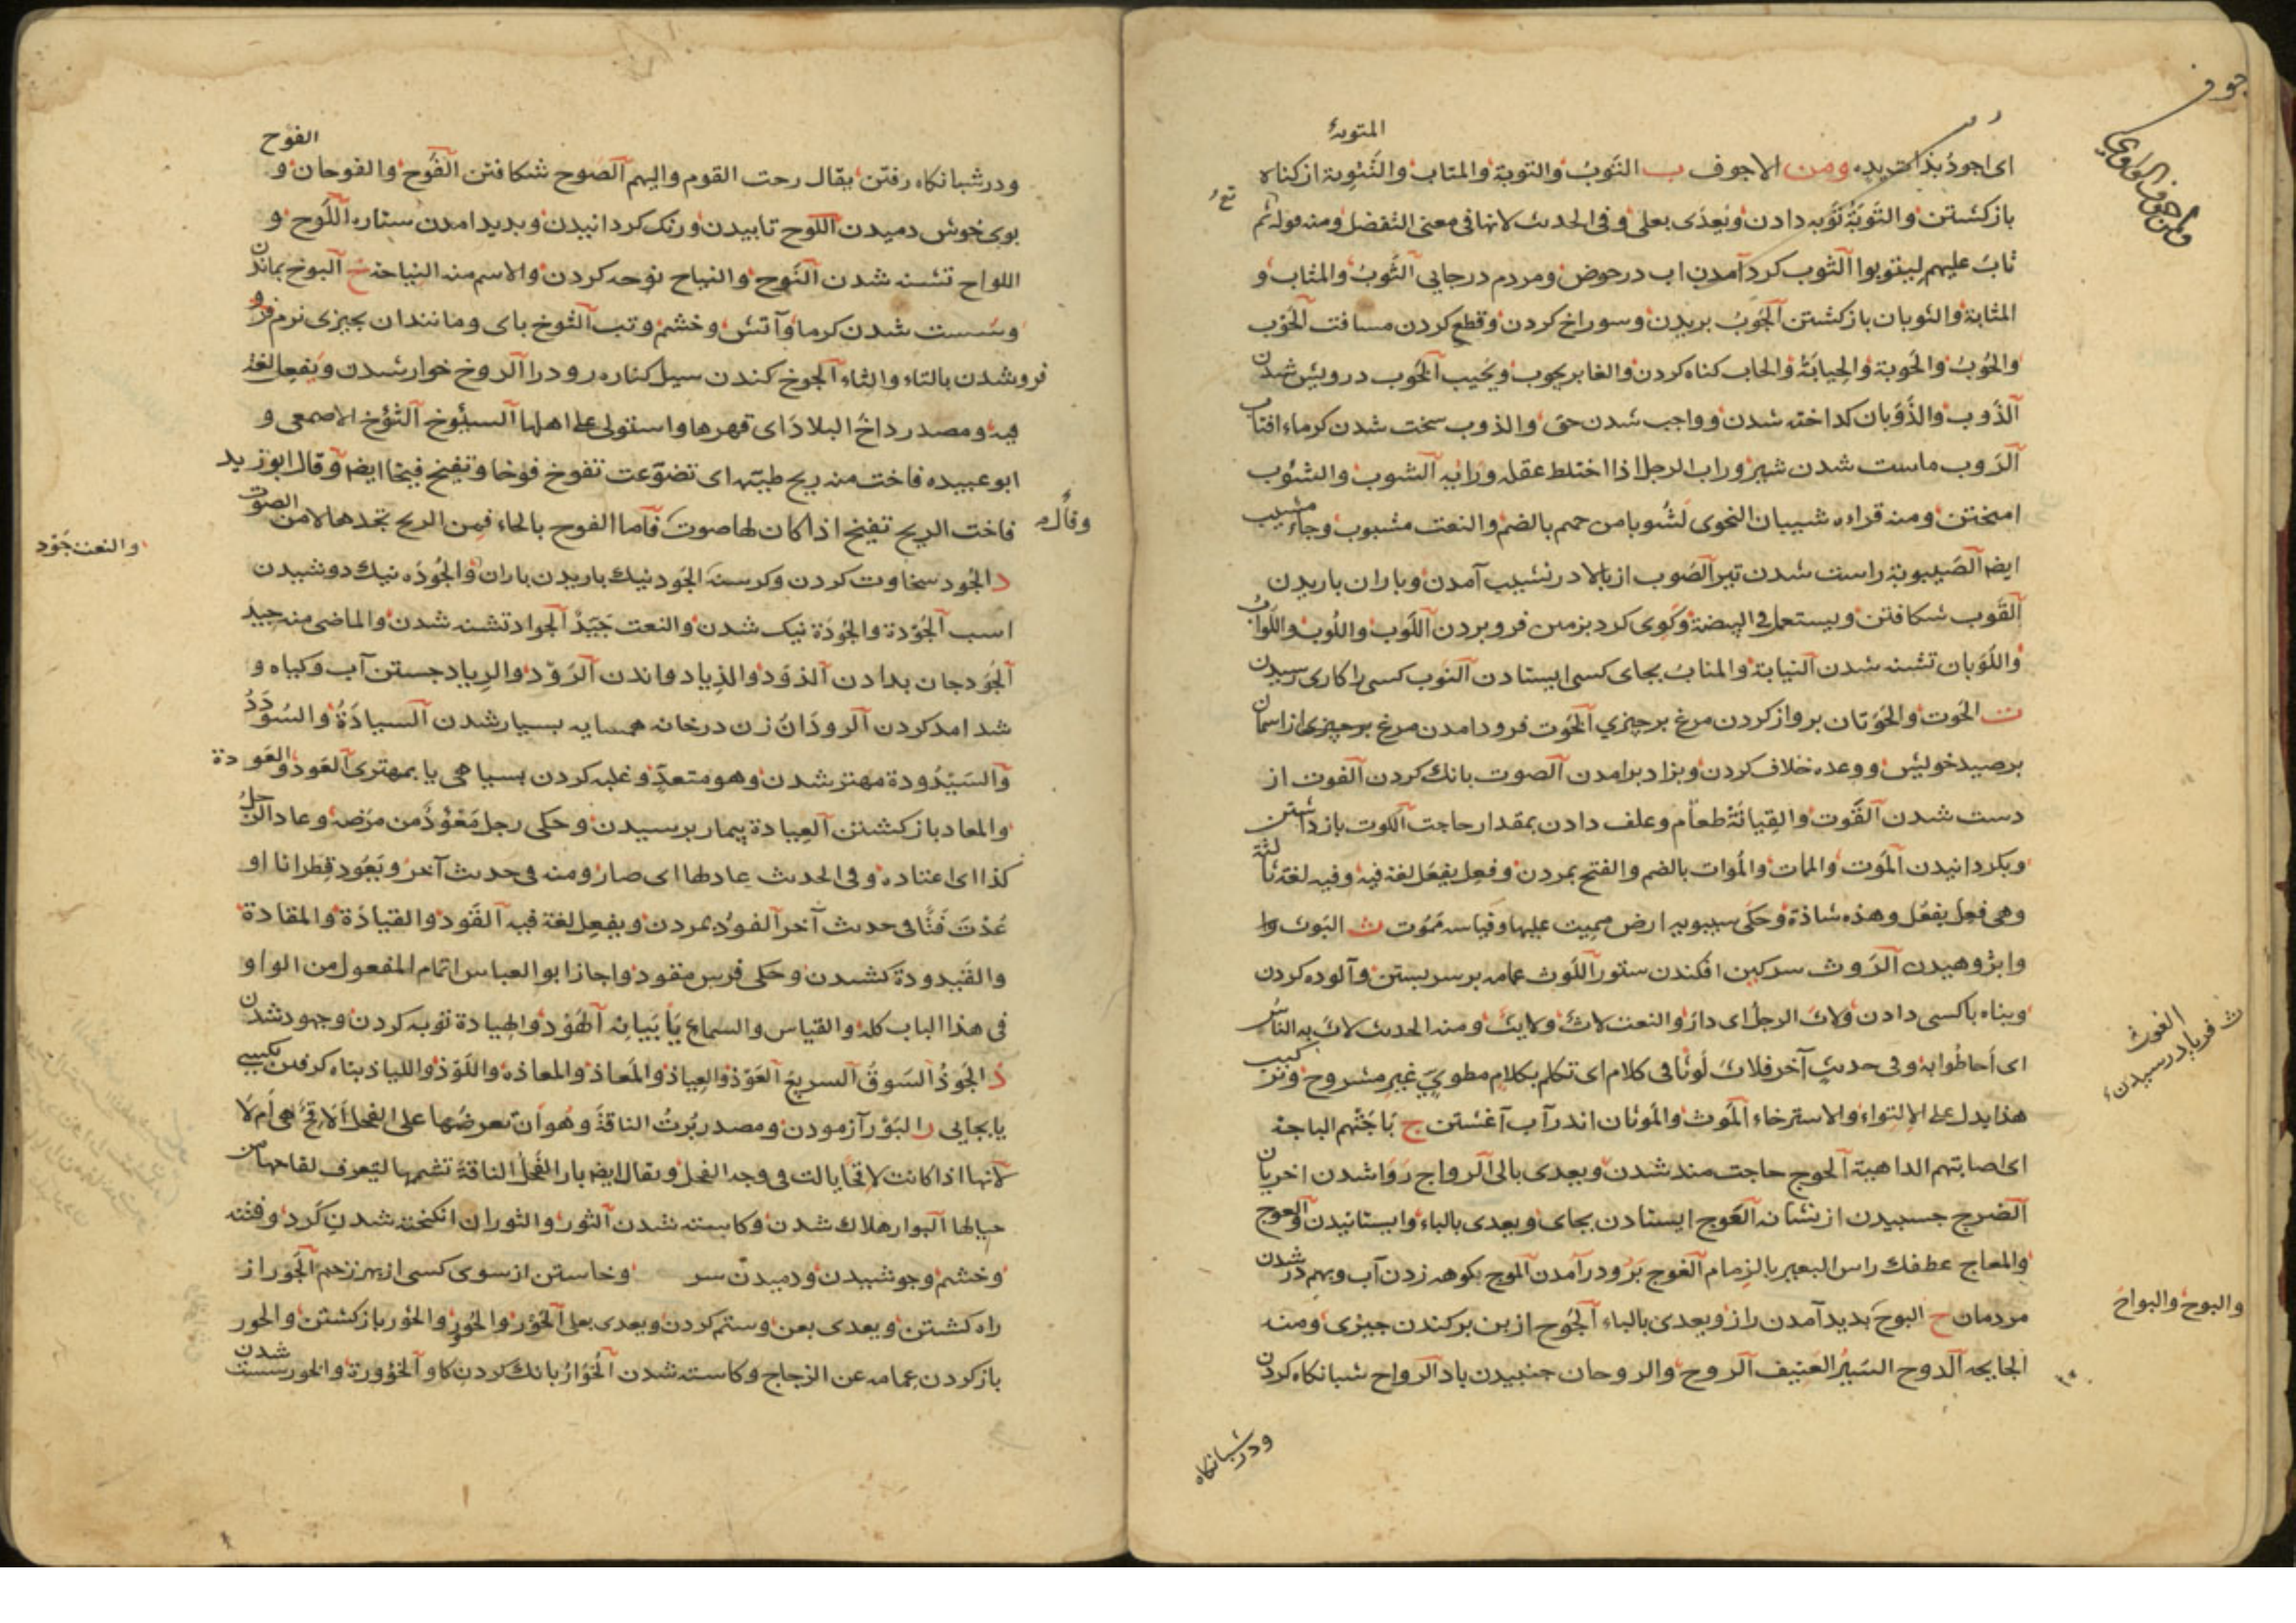 جوف
ومن الاجوف الواوي
المتوبة
ای اجود بذات یده ومن الاجوف ب التَوبُ والتوبة والمتاب والتَتْوِبة از کناه
بازکشتن والتَوبَةُ تَوبه دادن ویُعدّی بعلی وفی الحدیث لانها فی معنی التفضل ومنه قوله ثم
تع
تابَ علیهم لیتوبوا الثوب کرد آمدن اب در حوض ومردم در جایی الثَوبُ والمثاب و
المثابة والثوبان بازکشتن الجَوبُ بریدن وسوراخ کردن وقطع کردن مسافت الحَوب
والحُوبُ والحَوبة والحِیابَةُ والحاب کناه کردن والغابر یحوب ویَحیب الحُوب درویش شدن
الذَوب والذَوَبان کداخته شدن وواجب شدن حق والذوب سخت شدن کرماء افتاب
الرَوب ماست شدن شیر وراب الرجل اذا اختلط عقله ورایه الشوب والشئوب
امیختن ومنه قراءة شیبان النحوی لَشُوبا من حمیم بالضم والنعت مشوب وجاء مشیب
ایض الصَیبوبة راست شدن تیر الصَوب از بالا در نشیب آمدن وباران باریدن
القَوب شکافتن ویستعمل فی البیضة وکَوی کرد بزمین فرو بردن اللَوب واللُوب واللَوابُ
واللَوَبان تشنه شدن النیابة والمنابُ بجای کسی ایستادن النَوب کسی را کاری رسیدن
ت الحَوت والحَوَتان پرواز کردن مرغ بر چیزی الخَوت فرود امدن مرغ بر چیزی از اسمان
بر صید خویش ووعده خلاف کردن وبزاد برامدن الصوت بانک کردن الفوت از
دست شدن القَوت والقِیاتَةُ طعام وعلف دادن بمقدار حاجت الکوت باز داشتن
وبکردانیدن المَوت والمات والمُوات بالضم والفتح بمردن وفعِل یفعَل لغة فیه وفیه لغة ثالثة
وهی فعِل یفعُل وهذه شاذة وحَکی سیبویه ارض ممیت علیها وقیاسه مَمُوت ث البَوث وا
وابژوهیدن الرَوث سرکین افکندن ستور اللَوث عمامه بر سر بستن وآلوده کردن
وپناه باکسی دادن ولاث الرجل ای دارَ والنعت لاثٌ ولایثٌ ومنه الحدیث لاث به الناسُ
ث الغوث فریاد رسیدن
ای اَحاطُوا به وفی حدیث آخر فلاث لَوثًا فی کلام ای تکلم بکلامٍ مطویٍّ غیرِ مشروح وترکیب
هذا یدل علی الاِلتِواءِ والاسترخاء المَوث والمَوثان اندر آب آغشتن ج بَاجَتْهم الباجة
ای اصابتهم الداهیة الحوج حاجت مند شدن ویعدی بالی الرواج رَوَا شدن اخریان
الضرج جسبیدن از نشانه العَوج ایستادن بجای ویعدی بالباء وایستانیدن والعوج
والمعاج عطفک راس البعیر بالزِمام الغَوج بَرَو در آمدن الموج بکوهه زدن آب وبهم در شدن
مردمان ح البوح بدید آمدن راز ویعدی بالباء الجَوح از بن برکندن چیزی ومنه
والبوح والبواح
الجایحه الدوح السَیرُ العنیف الروح والروحان جنبیدن باد الرواح شبانکاه کردن
ودر شبانکاه
الفوح
ودر شبانکاه رفتن یقال رحت القوم والیهم الصَوح شکافتن الفَوح والفوحان و
بوی خوش دمیدن اللوح تابیدن ورنک کردانیدن وبدید امدن ستاره اللَوح و
اللواح تشنه شدن النَوح والنیاح نوحه کردن والاسم منه النِیاحة خ البَوخ بماندن
وسُست شدن کرما وآتش وخشم وتب الثوخ پای وما نندان بچیزی نرم فرو
فرو شدن بالتاء والثاء الجوخ کندن سیل کناره رود را الدوخ خوار شدن ویفعِل لغة
فیه ومصدر داخَ البلادَ ای قهرها واستولی علی اهلها السیئوخ الثؤخ الاصمعی و
ابو عبیده فاخت منه ریح طیبة ای تضوّعت تفوخ فوخا وتفیخ فیخا ایضا وقال ابو زید
وقال
فاخت الریح تفیخ اذا کان لها صوت فاما الفوح بالحاء فمن الریح تجدها لا من الصوت
د الجُود سخاوت کردن وکرسنه الجَود نیک باریدن باران والجُودَة نیک دوشیدن
والنعت جَوْد
اسب الجُوْدة والجَوْدَة نیک شدن والنعت جَیّد الجواد تشنه شدن والماضی منه جِیدَ
الجَوْد جان بدادن الذَوْد والذِیاد واندن الرَوْد والرِیاد جستن آب وکیاه و
شد امد کردن الرودَانُ زن در خانه همسایه بسیار شدن السیادَةُ والسُوْدَدُ
والسَیْدُودة مهتر شدن وهو متعدٍّ وغلبه کردن بسیاهی یا بمهتری العَود والعَودة
والمعاد بازکشتن العِیادة بیمار پرسیدن وحکی رجل مَعْوُوْدٌ من مَرَضه وعاد الرجلُ
کذا ای اعتاده وفی الحدیث عادلها ای صار ومنه فی حدیث آخر ویَعُود قطرانا او
عُدْتَ فَتّانا فی حدیث آخر الفود بمردن ویفعِل لغة فیه القَود والقیادَة والمقادة
والقَیدودة کشیدن وحکی فرس مقوود واجاز ابو العباس اتمام المفعول من الواو
فی هذا الباب کله والقیاس والسماع یَأبَیانه الهَوْد والهیادة توبه کردن وجهود شدن
ذ الجَوْذُ السَوقُ السریع العَوْذ والعِیاذ والمَعاذ والمعاذة واللَوْذ واللیاذ پناه کرفتن بکسی
یا بجایی ر البَوْر آزمودن ومصدر بُرتُ الناقةَ وهو اَن تعرضَها علی الفحل اَلاقحٌ هی ام لا
لانها اذا کانت لاقحًا بالت فی وجه الفحل ویقال ایض بار الفَحلُ الناقةَ تشممها لیَعرف لقاحها من
حیالها البوار هلاک شدن وکاسته شدن الثَور والثوران انکیخته شدن کَرد وفتنه
وخشم وجوشیدن ودمیدن سر وخاستن از سوی کسی از بهر زخم الجَور از
راه کشتن ویعدی بعن وستم کردن ویعدی بعلی الحَوْر والحُور والحَوْر بازکشتن والحور
باز کردن عمامه عن الزجاج وکاسته شدن الخُوَارُ بانک کردن کاو الخُؤورة والخور سست شدن